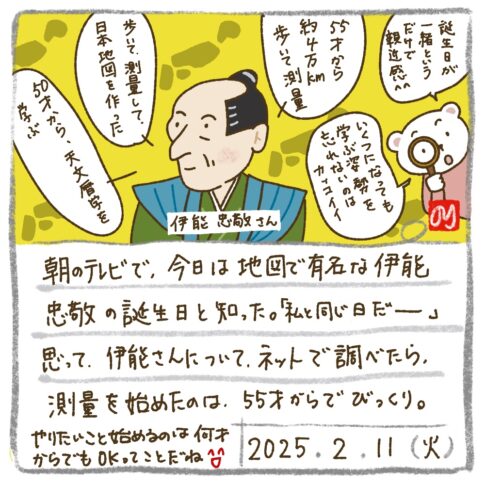 誕生日が
一緒という
だけで
親近感^^
55才から
約4万km
歩いて測量
歩いて、測量して、
日本地図を作った
50才から、天文暦学を
学ぶ
いくつになっても
学ぶ姿勢を
忘れないのは
カッコイイ
伊能 忠敬さん
朝のテレビで、今日は地図で有名な伊能
忠敬の誕生日と知った。「私と同じ日だー」
思って、伊能さんについて、ネットで調べたら、
測量を始めたのは、55才からでびっくり。
やりたいこと始めるのは何才
からでもOKってことだね
2025.2.11(火)